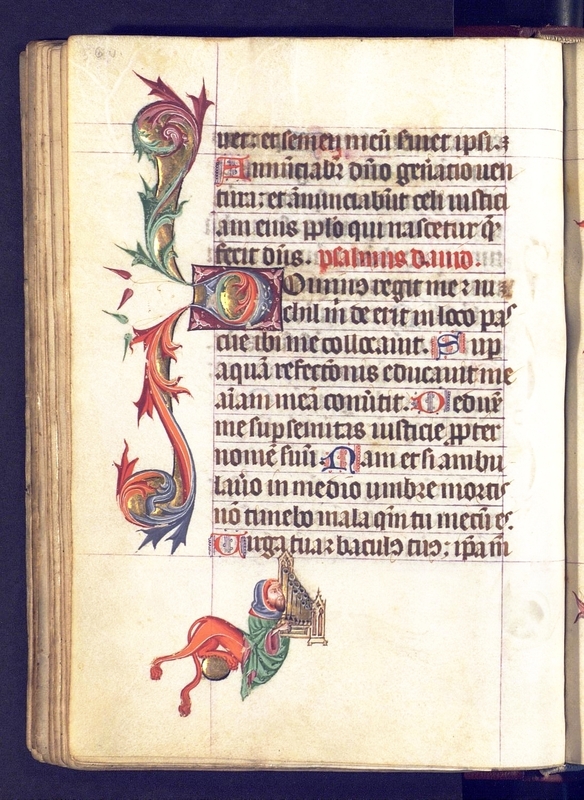 uet: et semen meū seruiet ipsi: ⁊
Annūciabit̄ dn̄o gen̄atio uen
tura: et ānunciabūt celi iustici
am eius pplo qui nascetur q̄
fecit dn̄s. psalmus dauid.
Dominus regit me ⁊ ni
chil m̄ de erit in loco pas
cue ibi me collocauit. Sup
aquā refectōnis educauit me
aīam meā conūtit. Deduxͭ
me sup semitas iusticie ppter
nomē suū. Nam et si ambu
lauo in medio umbre mortis
nō timebo mala qm̄ tu mecū es.
Uirga tua ⁊ baculꝰ tuꝰ: ip̄a m